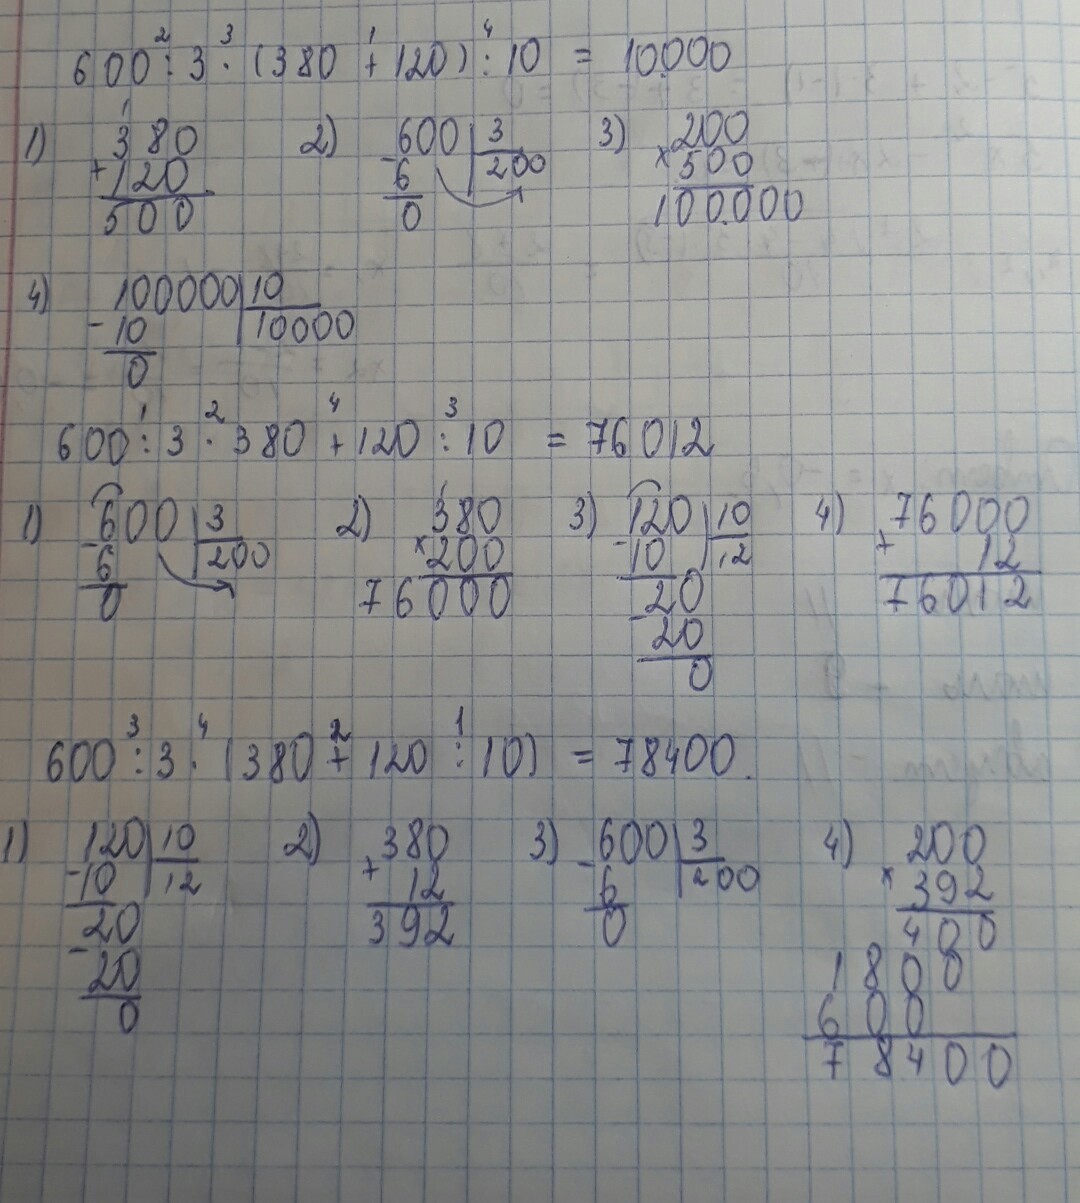 600 : 3 · (380 + 120) : 10 = 10.000
2 3 1 4
1) 380 + 120 = 500 2) 600 | 3 3) 200 × 500
1
380 600 3 200
+120 -6 200 ×500
500 0 100.000
4) 100000 10
-10 10000
0
1 2 4 3
600 : 3 · 380 + 120 : 10 = 76012
1) 600 3 2) 380 3) 120 10 4) 76000
-6 200 ×200 -10 12 + 12
0 76000 20 76012
-20
0
3 4 2 1
600 : 3 · (380 + 120 : 10) = 78400.
1) 120 10 2) 380 3) 600 3 4) 200
-10 12 + 12 -6 200 ×392
20 392 0 400
-20 1800
0 600
78400